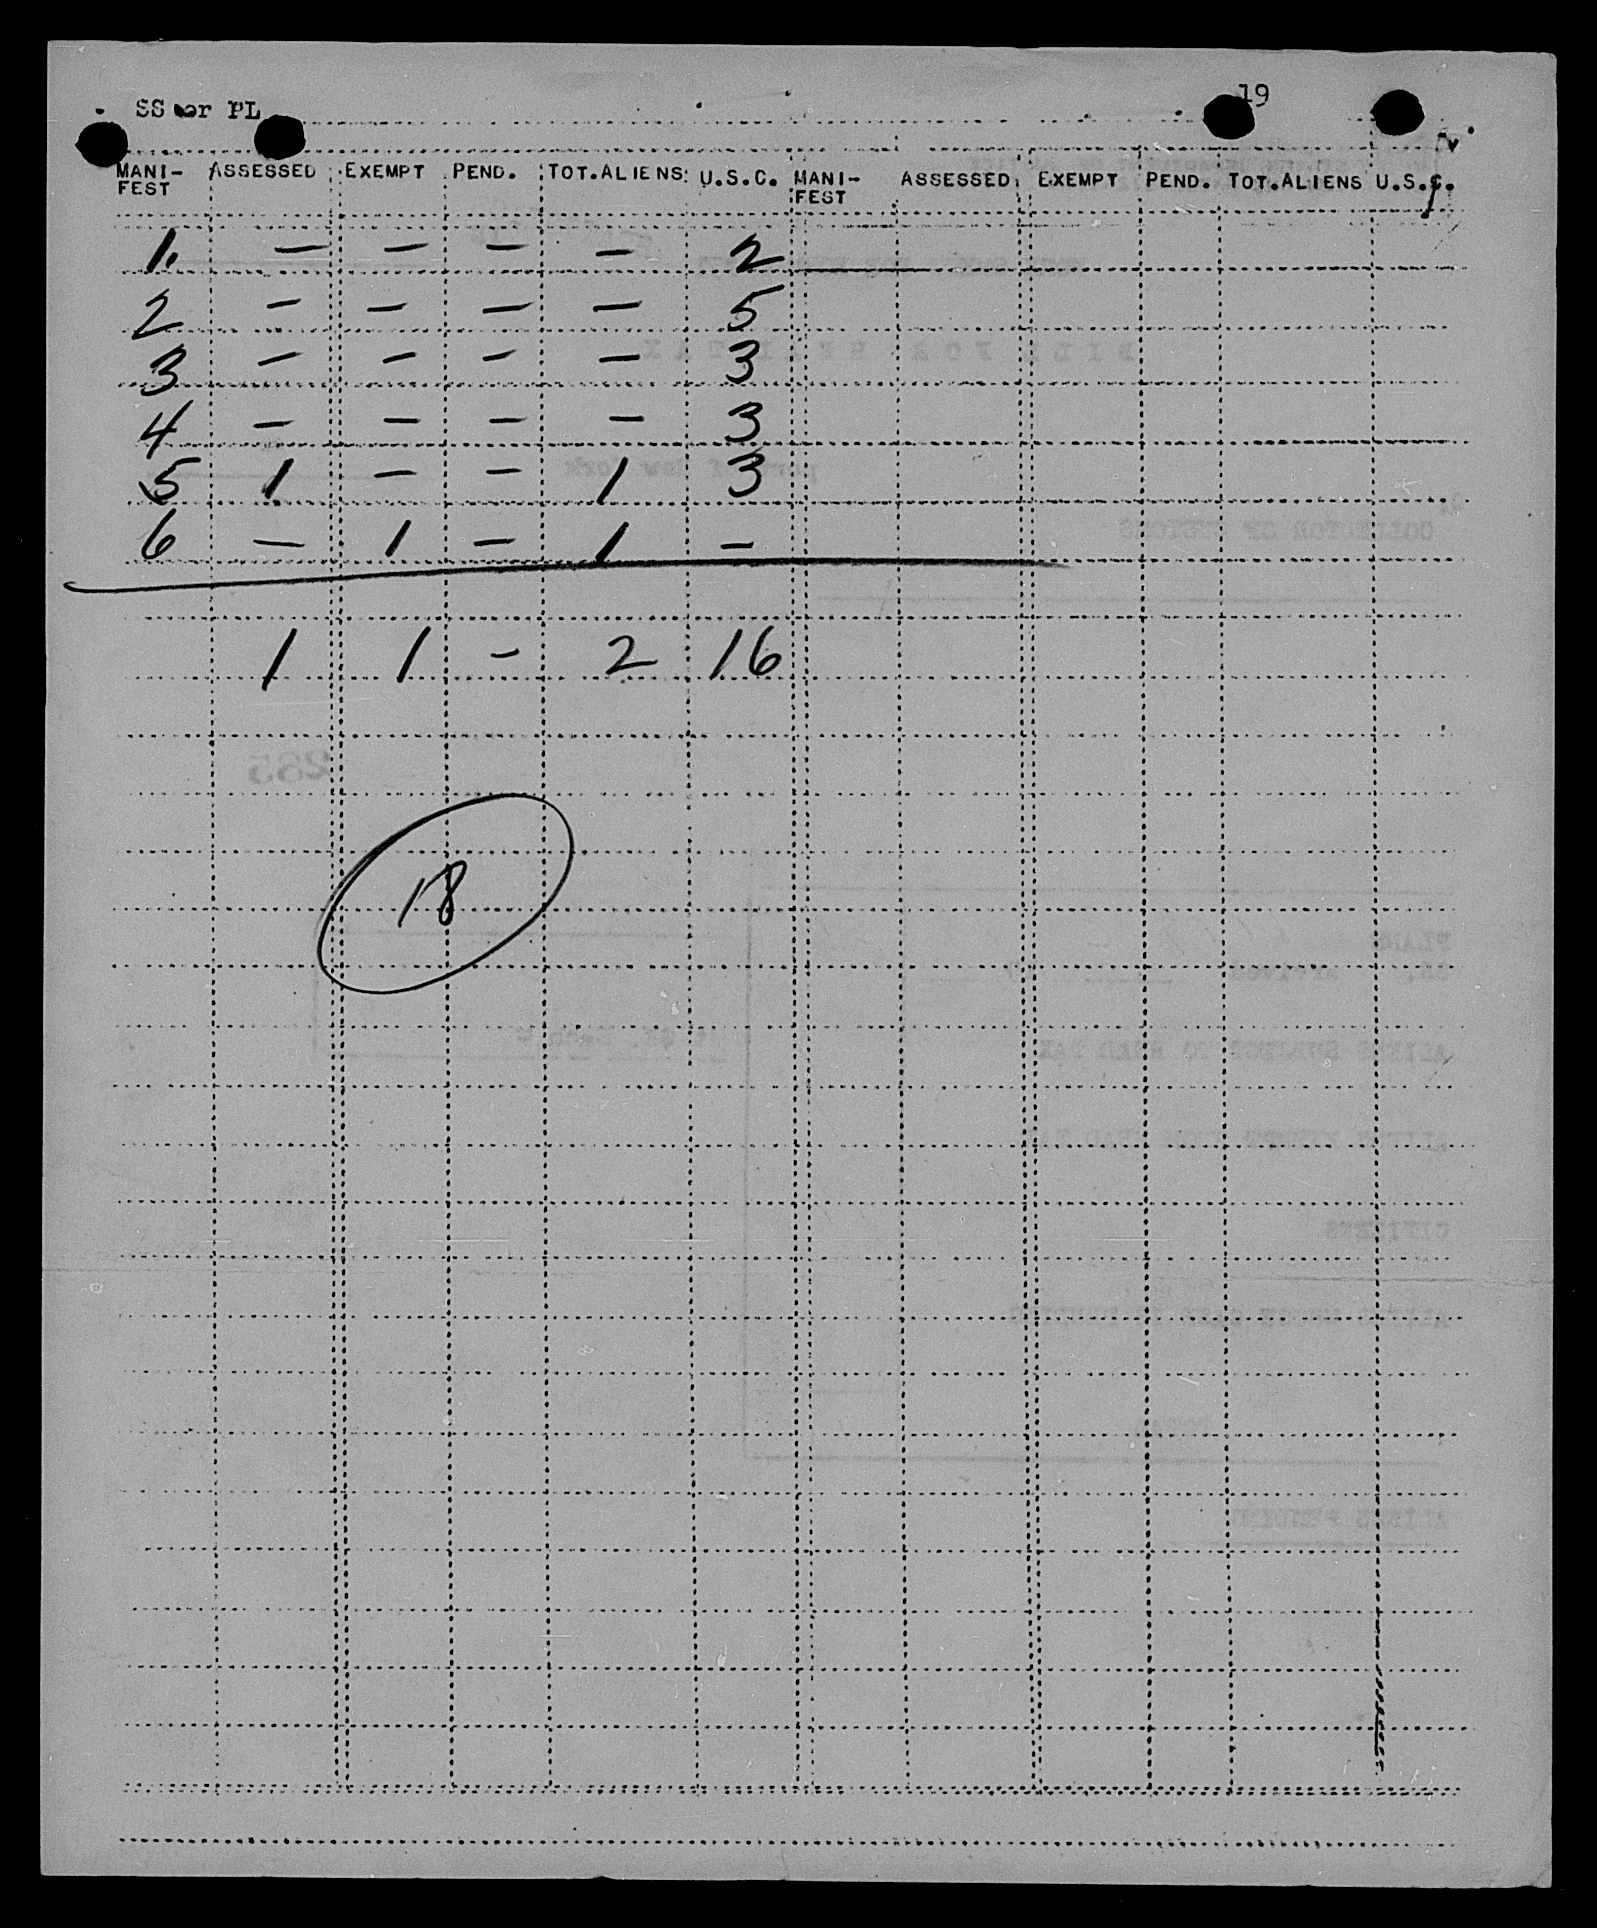 SS or PL 19
MANI-FEST ASSESSED EXEMPT PEND. TOT.ALIENS U.S.C. MANI-FEST ASSESSED EXEMPT PEND. TOT.ALIENS U.S.C.
1. — — — — 2
2 — — — — 5
3 — — — — 3
4 — — — — 3
5 1 — — 1 3
6 — 1 — 1 —
1 1 — 2 16
18